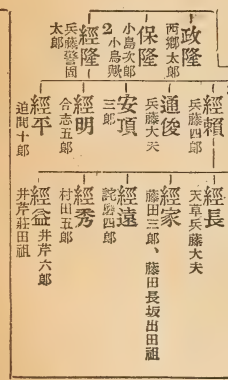 政隆
西鄕太郎
保隆
小島次郎
2 小島殿
經隆
兵藤警固
太郎
經賴
兵藤四郎
通俊
兵藤大夫
安項
三郎
經明
合志五郎
經平
迫間十郎
經長
天草兵藤大夫
經家
藤田三郎、藤田長坂出田祖
經遠
詫磨四郎
經秀
村田五郎
經益
井芹六郎
井芹莊田祖